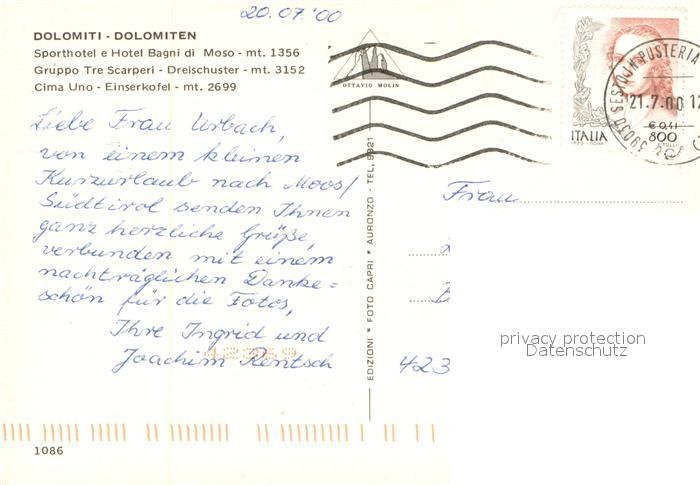 20.07.'00
DOLOMITI - DOLOMITEN
Sporthotel e Hotel Bagni di Moso - mt. 1356
Gruppo Tre Scarperi - Dreischuster - mt. 3152
Cima Uno - Einserkofel - mt. 2699
OTTAVIO MOLIN
Liebe Frau Urbach,
von einem kleinen
Kurzurlaub nach Moos/
Südtirol senden Ihnen
ganz herzliche Grüße,
verbunden mit einem
nachträglichen Danke=
schön für die Fotos,
Ihre Ingrid und
Joachim Rentsch
EDIZIONI * FOTO CAPRI * AURONZO - TEL. 9821
ITALIA
€ 0,41
800
39030 SESTO IN PUSTERIA
21.7.00 12
Frau
423
privacy protection
Datenschutz
1086